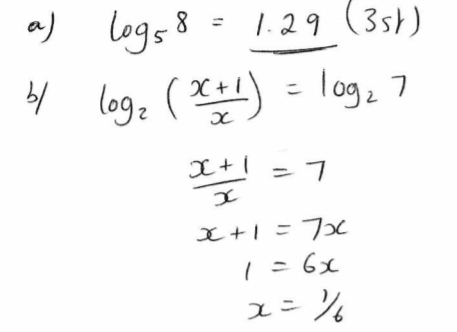 a) log₅ 8 = 1.29 (3sf)
b/ log₂ ( (x+1)/x ) = log₂ 7
(x+1)/x = 7
x+1 = 7x
1 = 6x
x = 1/6